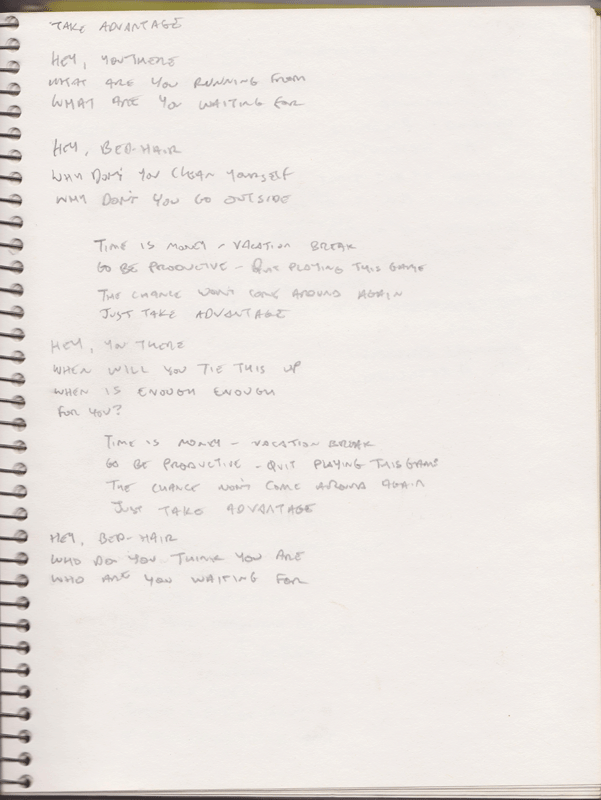 TAKE ADVANTAGE
HEY, YOU THERE
WHAT ARE YOU RUNNING FROM
WHAT ARE YOU WAITING FOR
HEY, BED-HAIR
WHY DON'T YOU CLEAN YOURSELF
WHY DON'T YOU GO OUTSIDE
TIME IS MONEY - VACATION BREAK
GO BE PRODUCTIVE - QUIT PLAYING THIS GAME
THE CHANCE WON'T COME AROUND AGAIN
JUST TAKE ADVANTAGE
HEY, YOU THERE
WHEN WILL YOU TIE THIS UP
WHEN IS ENOUGH ENOUGH
FOR YOU?
TIME IS MONEY - VACATION BREAK
GO BE PRODUCTIVE - QUIT PLAYING THIS GAME
THE CHANCE WON'T COME AROUND AGAIN
JUST TAKE ADVANTAGE
HEY, BED-HAIR
WHO DO YOU THINK YOU ARE
WHO ARE YOU WAITING FOR